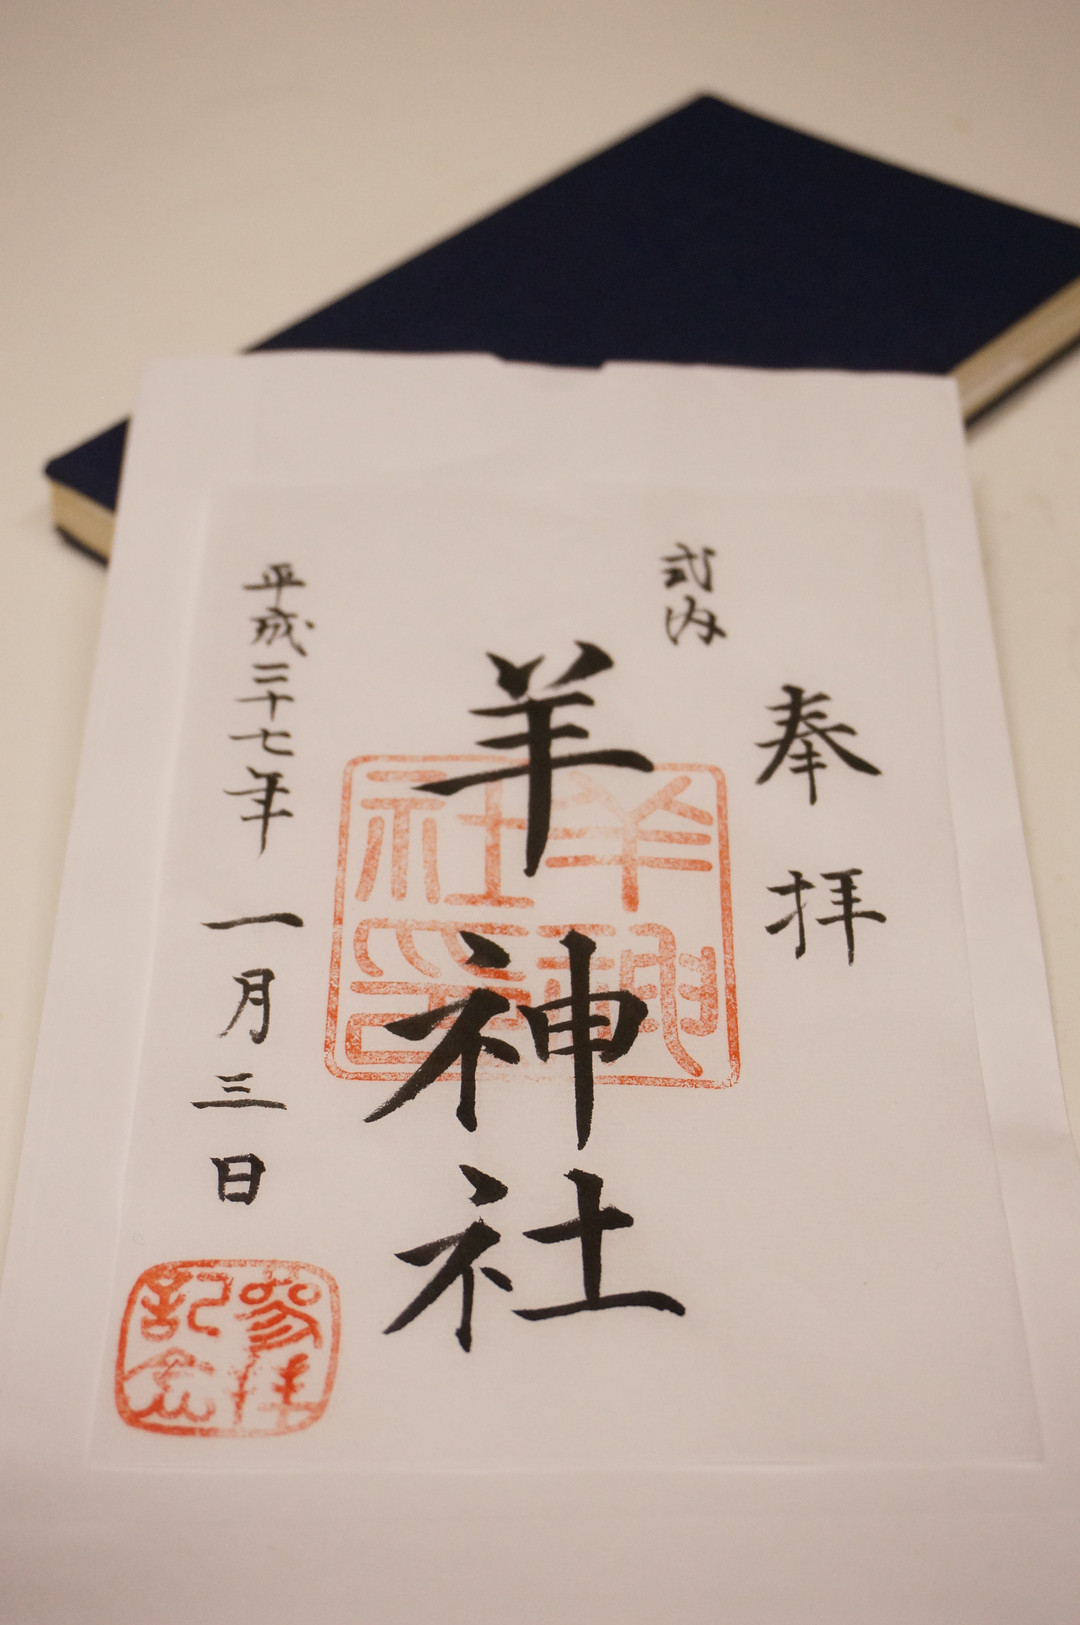 奉拝
式内
羊神社
平成二十七年一月三日
羊神社印
参拝記念